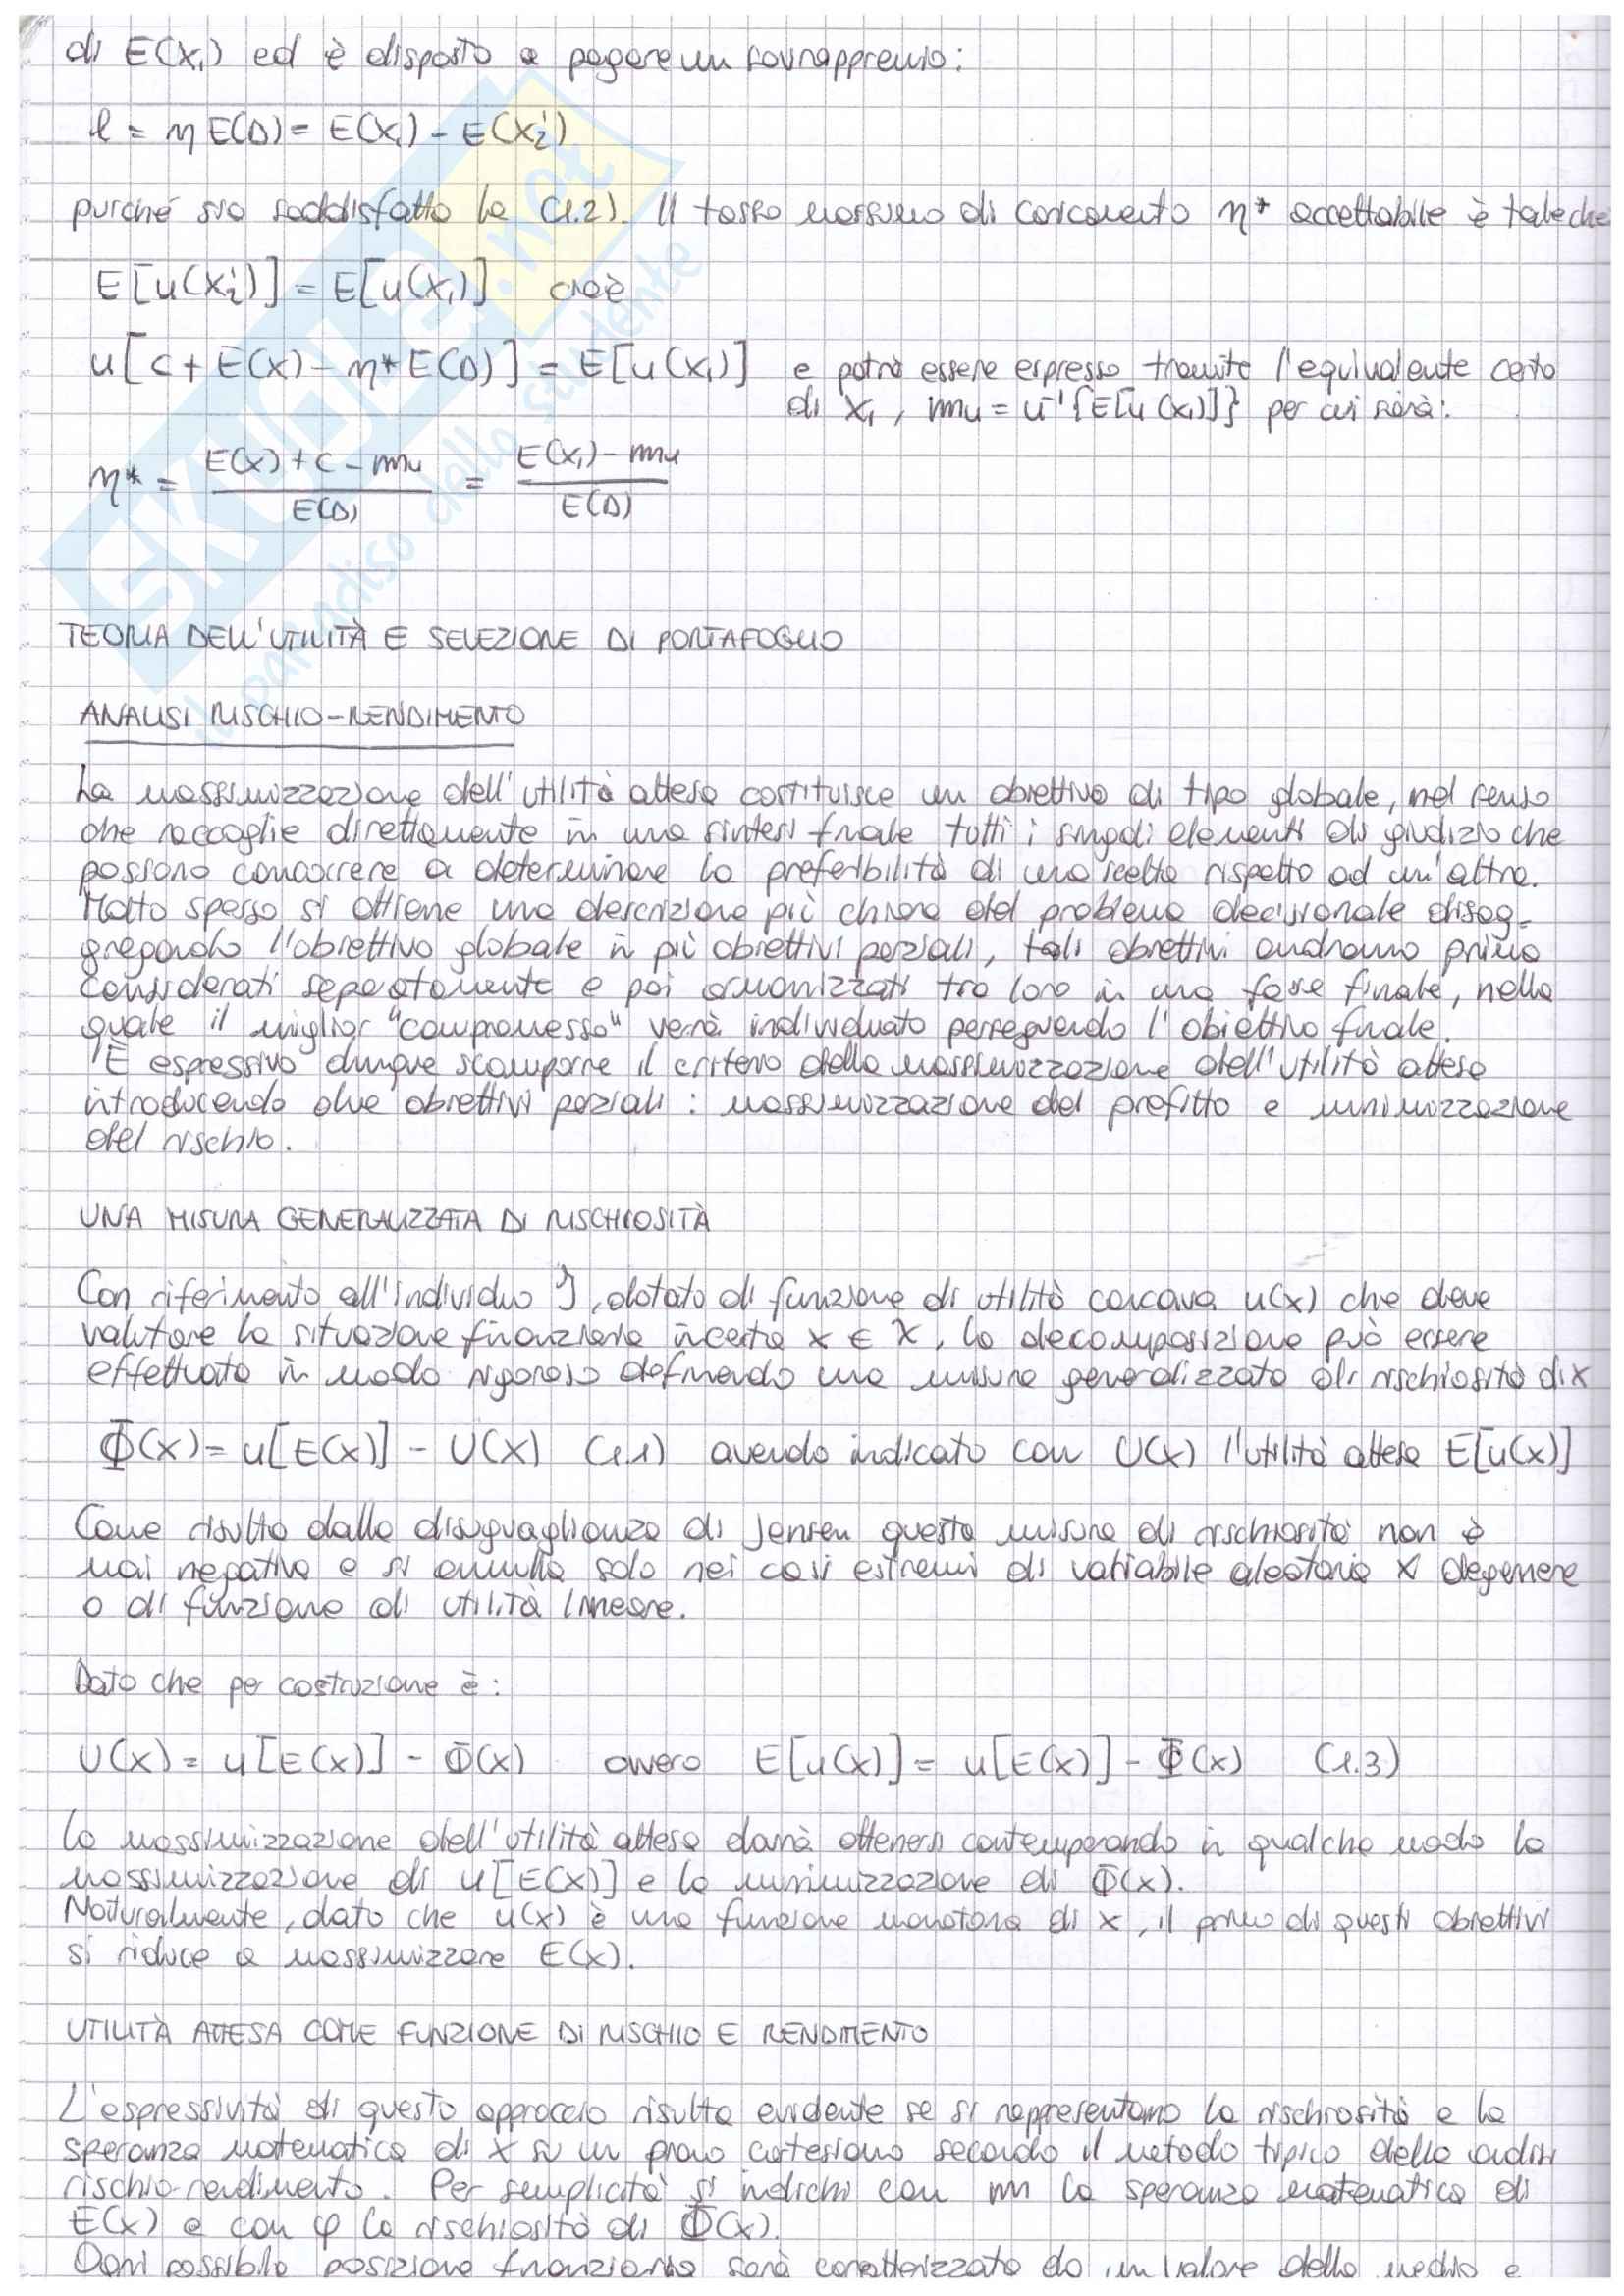 di E(X₁) ed è disposto a pagare un sovrappremio:
l = η E(D) = E(X₁) - E(X₂')
purché sia soddisfatta la (1.2). Il tasso massimo di caricamento η* accettabile è tale che
E[u(X₂')] = E[u(X₁)] cioè
u[c + E(X) - η* E(D)] = E[u(X₁)] e potrà essere espresso tramite l'equivalente certo
di X₁, mᵤ = u⁻¹{E[u(X₁)]} per cui sarà:
η* = (E(X) + c - mᵤ) / E(D) = (E(X₁) - mᵤ) / E(D)
TEORIA DELL'UTILITÀ E SELEZIONE DI PORTAFOGLIO
ANALISI RISCHIO-RENDIMENTO
La massimizzazione dell'utilità attesa costituisce un obiettivo di tipo globale, nel senso
che raccoglie direttamente in una sintesi finale tutti i singoli elementi di giudizio che
possono concorrere a determinare la preferibilità di una scelta rispetto ad un'altra.
Molto spesso si ottiene una descrizione più chiara del problema decisionale disag-
gregando l'obiettivo globale in più obiettivi parziali, tali obiettivi andranno prima
considerati separatamente e poi armonizzati tra loro in una fase finale, nella
quale il miglior "compromesso" verrà individuato perseguendo l'obiettivo finale.
È espressivo dunque scomporre il criterio della massimizzazione dell'utilità attesa
introducendo due obiettivi parziali: massimizzazione del profitto e minimizzazione
del rischio.
UNA MISURA GENERALIZZATA DI RISCHIOSITÀ
Con riferimento all'individuo J, dotato di funzione di utilità concava u(x) che deve
valutare la situazione finanziaria incerta X ∈ 𝒳, la decomposizione può essere
effettuata in modo rigoroso definendo una misura generalizzata di rischiosità di X
Φ(X) = u[E(X)] - U(X) (1.1) avendo indicato con U(X) l'utilità attesa E[u(X)]
Come risulta dalla disuguaglianza di Jensen questa misura di rischiosità non è
mai negativa e si annulla solo nei casi estremi di variabile aleatoria X degenere
o di funzione di utilità lineare.
Dato che per costruzione è:
U(X) = u[E(X)] - Φ(X) ovvero E[u(X)] = u[E(X)] - Φ(X) (1.3)
la massimizzazione dell'utilità attesa dovrà ottenersi contemperando in qualche modo la
massimizzazione di u[E(X)] e la minimizzazione di Φ(X).
Naturalmente, dato che u(x) è una funzione monotona di x, il primo di questi obiettivi
si riduce a massimizzare E(X).
UTILITÀ ATTESA COME FUNZIONE DI RISCHIO E RENDIMENTO
L'espressività di questo approccio risulta evidente se si rappresentano la rischiosità e la
speranza matematica di X su un piano cartesiano secondo il metodo tipico della analisi
rischio-rendimento. Per semplicità si indichi con m la speranza matematica di
E(X) e con φ la rischiosità di Φ(X).
Ogni possibile posizione finanziaria sarà caratterizzata da un valore della media e
SKUOLA.net
il paradiso dello studente